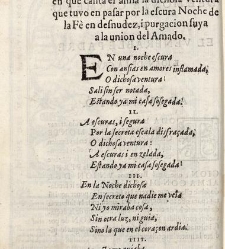 en que canta el alma la dichosa ventura
que tuvo en pasar por la escura Noche de
la Fè en desnudez, i purgacion suya
a la union del Amado.
I.
EN una noche escura
Con ansias en amores inflamada,
O dichosa ventura!
Sali sin ser notada,
Estando ya mi casa sosegada!
II.
A escuras, i segura
Por la secreta escala disfraçada,
O dichosa ventura!
A escuras i en zelada,
Estando ya mi casa sosegada!
III.
En la Noche dichosa
En secreto que nadie me veìa
Ni yo miraba cosa,
Sin otra luz, ni guia,
Sino la que en el coraçon ardia.
IIII.